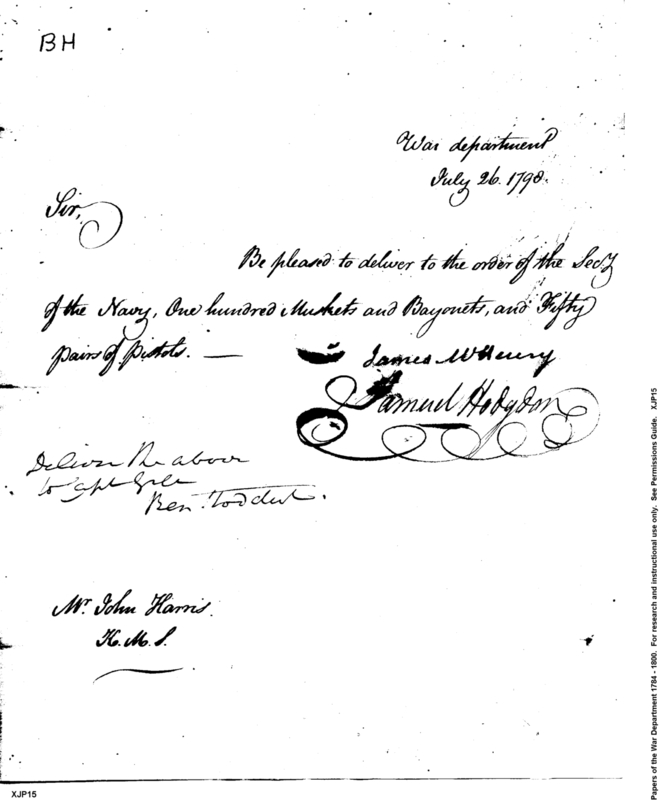 BH
War department
July 26. 1798.
Sir,
Be pleased to deliver to the order of the Secy
of the Navy, One hundred Muskets and Bayonets, and Fifty
pairs of Pistols. —
James McHenry
Samuel Hodgdon
Deliver the above
to Capt Gill
Ben. Stoddert.
Mr. John Harris.
K. M. S.
XJP15
Papers of the War Department 1784 - 1800. For research and instructional use only. See Permissions Guide. XJP15